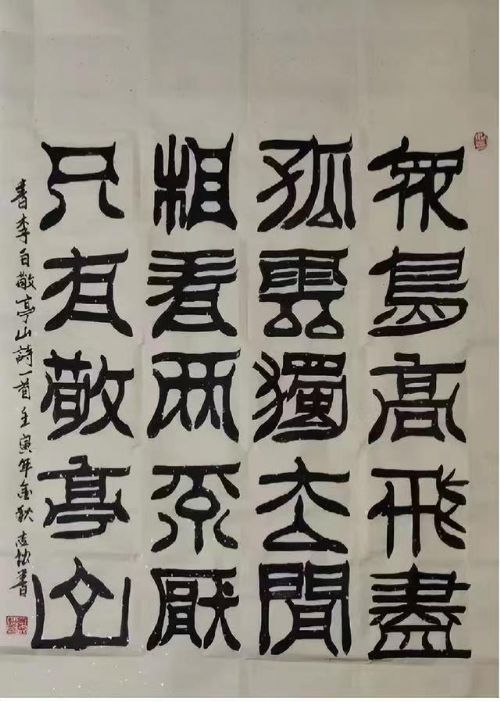 眾鳥高飛盡
孤雲獨去閒
相看兩不厭
只有敬亭山
書李白敬亭山詩一首壬寅年金秋志書